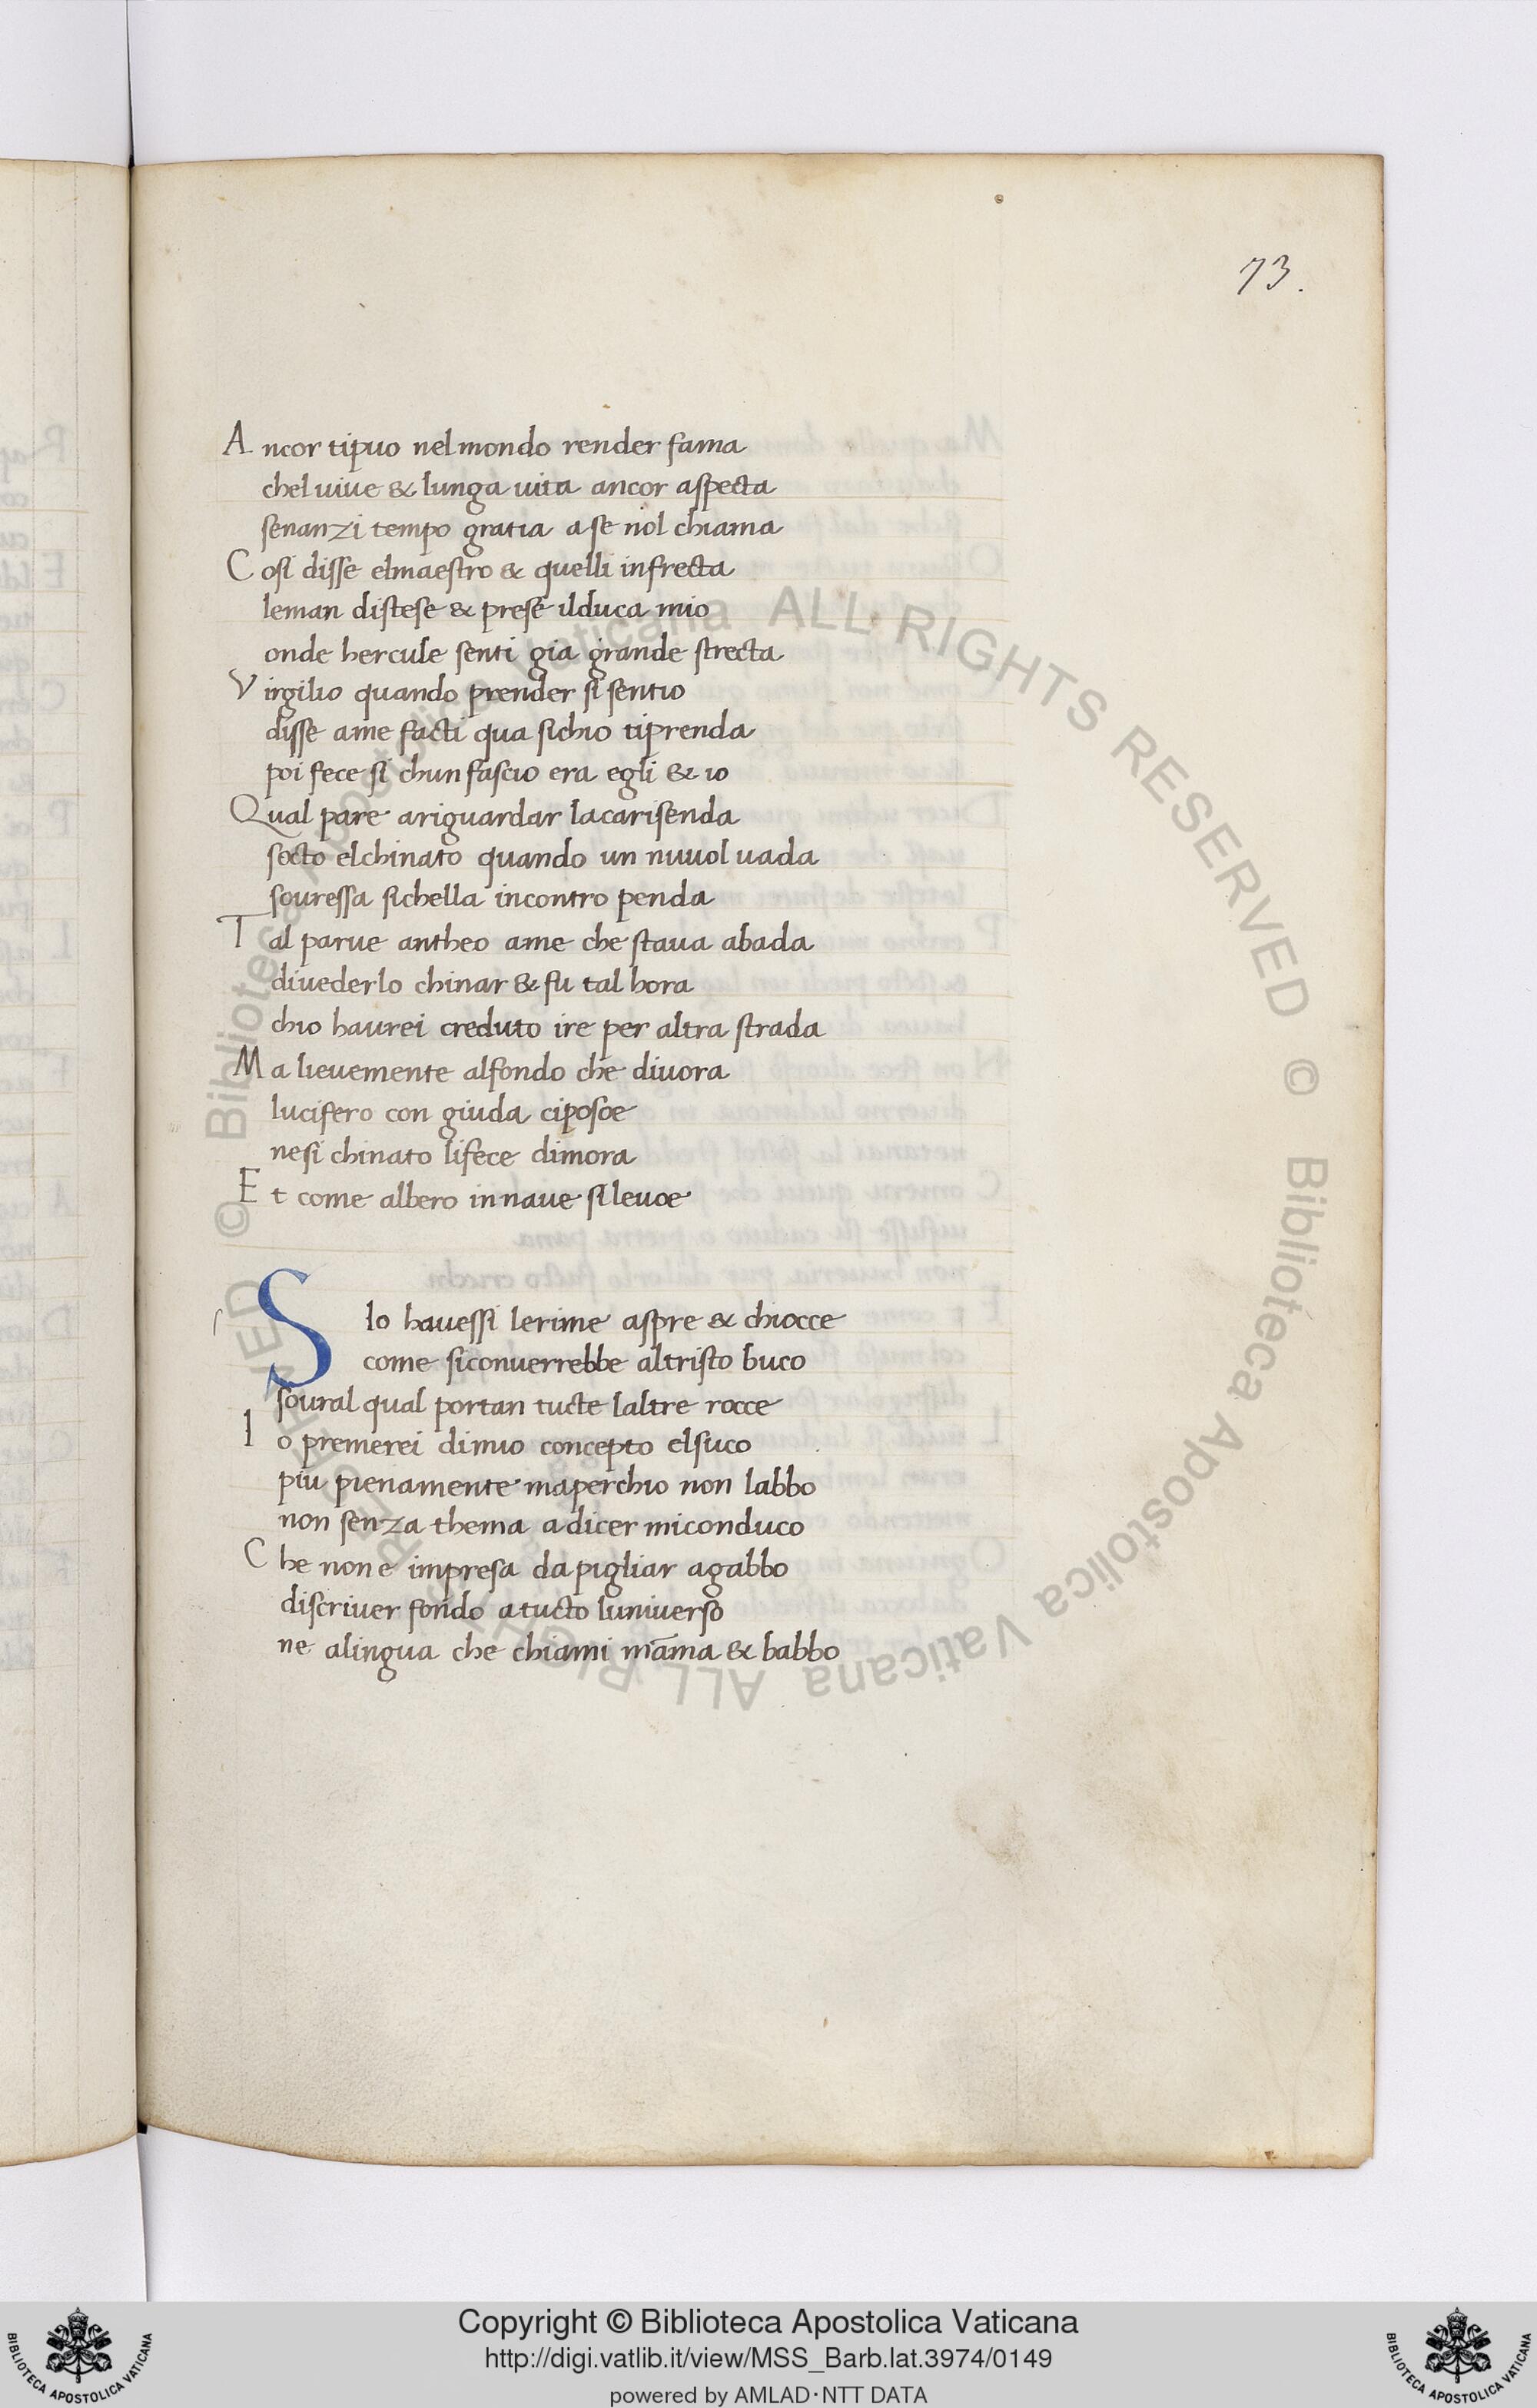 73.
Ancor tipuo nel mondo render fama
chel uiue & lunga uita ancor aspecta
senanzi tempo gratia a se nol chiama
Cosi disse elmaestro & quelli infrecta
leman distese & prese ilduca mio
onde hercule senti gia grande strecta
Virgilio quando prender si sentio
disse ame facti qua sichio tiprenda
poi fece si chun fascio era egli & io
Qual pare ariguardar lacarisenda
socto elchinato quando un nuuol uada
souressa sichella incontro penda
Tal parue antheo ame che staua abada
diuederlo chinar & fu tal hora
chio haurei creduto ire per altra strada
Ma lieuemente alfondo che diuora
lucifero con giuda ciposoe
nesi chinato lifece dimora
Et come albero in naue si leuoe
SIo hauessi lerime aspre & chiocce
come siconuerrebbe altristo buco
soural qual portan tucte laltre rocce
Io premerei dimio concepto elsuco
piu pienamente maperchio non labbo
non senza thema a dicer miconduco
Che non e impresa da pigliar agabbo
discriuer fondo atucto luniuerso
ne alingua che chiami mãma & babbo
© Biblioteca Apostolica Vaticana ALL RIGHTS RESERVED © Biblioteca Apostolica Vaticana ALL RIGHTS RESERVED
Copyright © Biblioteca Apostolica Vaticana
http://digi.vatlib.it/view/MSS_Barb.lat.3974/0149
powered by AMLAD·NTT DATA
BIBLIOTECA APOSTOLICA VATICANA
BIBLIOTECA APOSTOLICA VATICANA